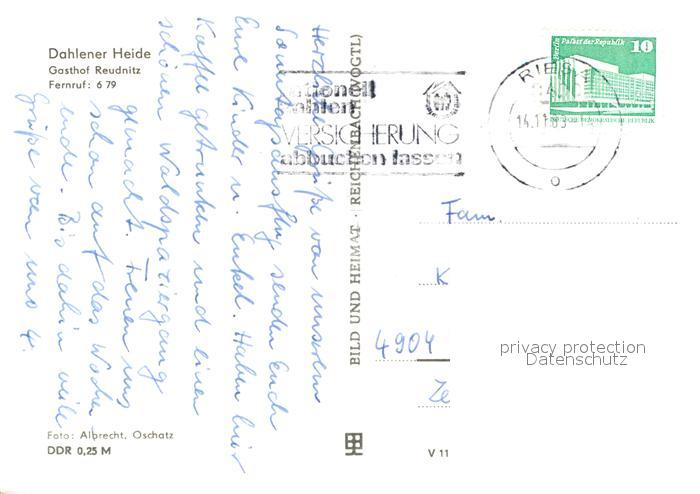 Dahlener Heide
Gasthof Reudnitz
Fernruf: 6 79
Herzliche Grüße von unserem
Sonntagsausflug senden Euch
Eure Kinder u. Enkel. Haben hier
Kaffee getrunken und einen
schönen Waldspaziergang
gemacht. Freuen uns
schon auf das Wochen
ende. Bis dahin viele
Grüße von uns 4.
Foto: Albrecht, Oschatz
DDR 0,25 M
BILD UND HEIMAT · REICHENBACH (VOGTL)
V 11
rationell
zahlen
VERSICHERUNG
abbuchen lassen
RIESA
14.11.83
Berlin Palast der Republik 10
DEUTSCHE DEMOKRATISCHE REPUBLIK
Fam.
K
4904
Ze
privacy protection
Datenschutz